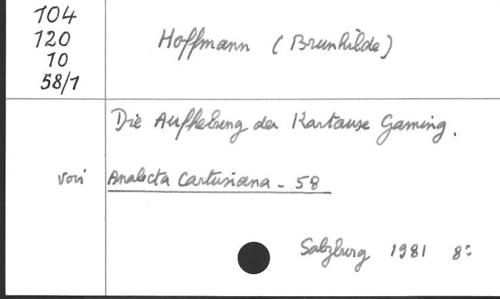 104
120
10
58/1
Hoffmann (Brunhilde)
Die Aufhebung der Kartause Gaming.
voir Analecta Cartusiana - 58
Salzburg 1981 8°